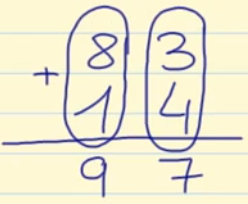 8 3
+ 1 4
9 7